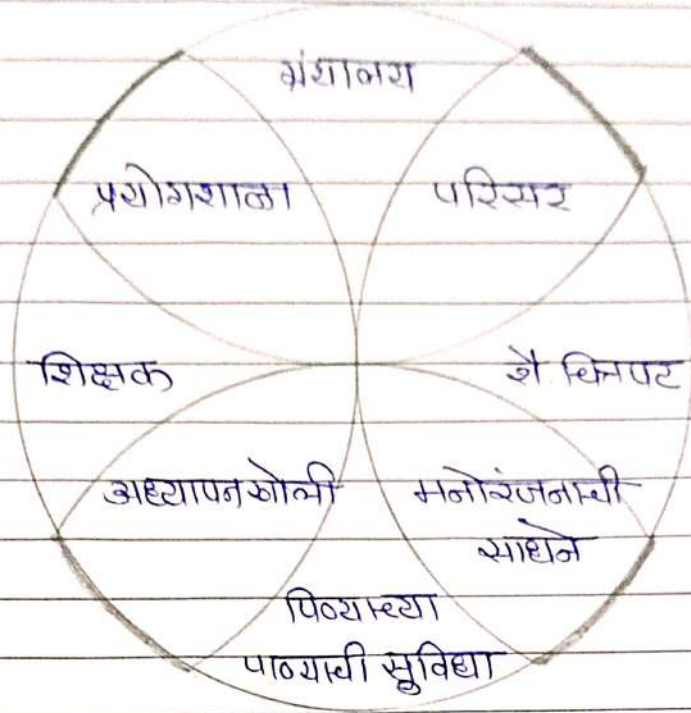 ग्रंथालय
प्रयोगशाळा
परिसर
शिक्षक
शै. चित्रपट
अध्यापन खोली
मनोरंजनाची
साधने
पिण्याच्या
पाण्याची सुविधा